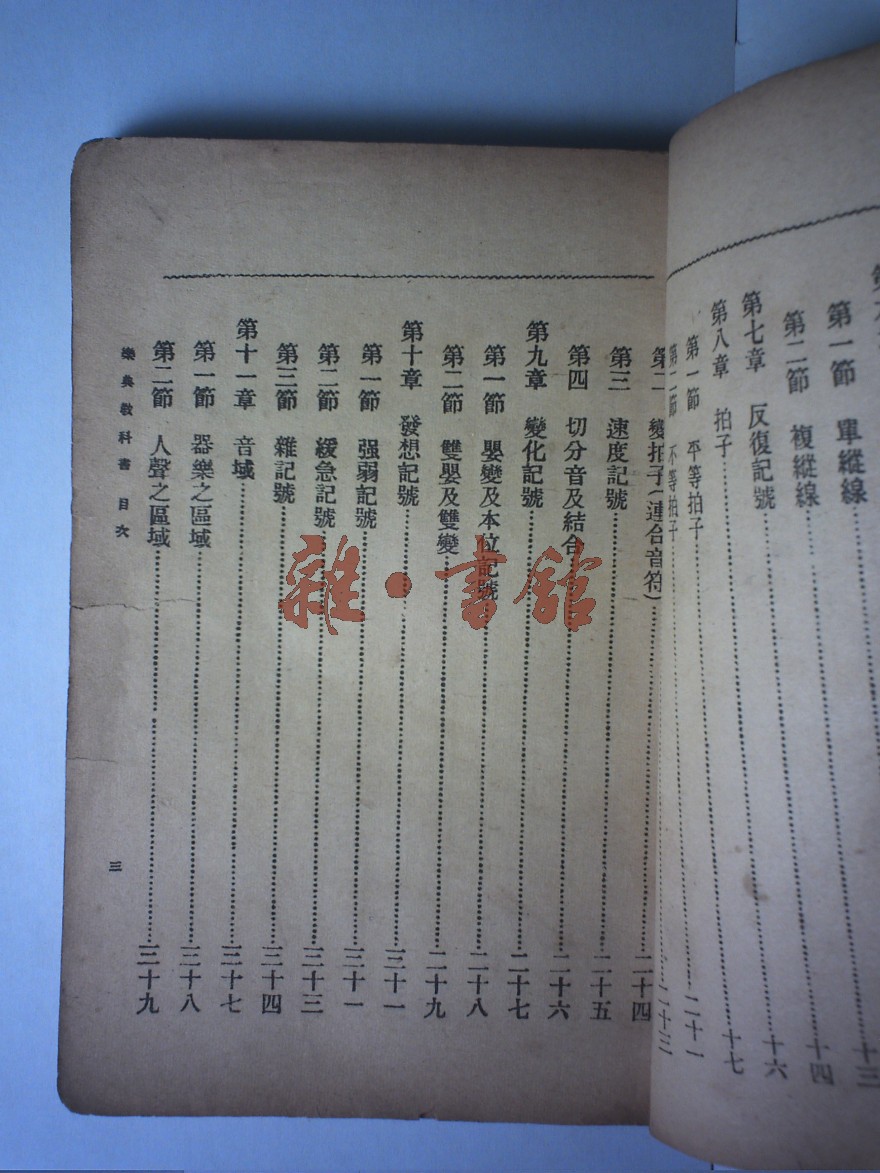 第一節 單縱線 十三
第二節 複縱線 十四
第七章 反復記號 十六
第八章 拍子 十七
第一節 平等拍子 二十一
第二節 不等拍子 二十三
變拍子(連合音符) 二十四
第三 速度記號 二十五
第四 切分音及結合 二十六
第九章 變化記號 二十七
第一節 嬰變及本位記號 二十八
第二節 雙嬰及雙變 二十九
第十章 發想記號 三十一
第一節 强弱記號 三十一
第二節 緩急記號 三十三
第三節 雜記號 三十四
第十一章 音域 三十七
第一節 器樂之區域 三十八
第二節 人聲之區域 三十九
樂典教科書 目次 三
雜·書館